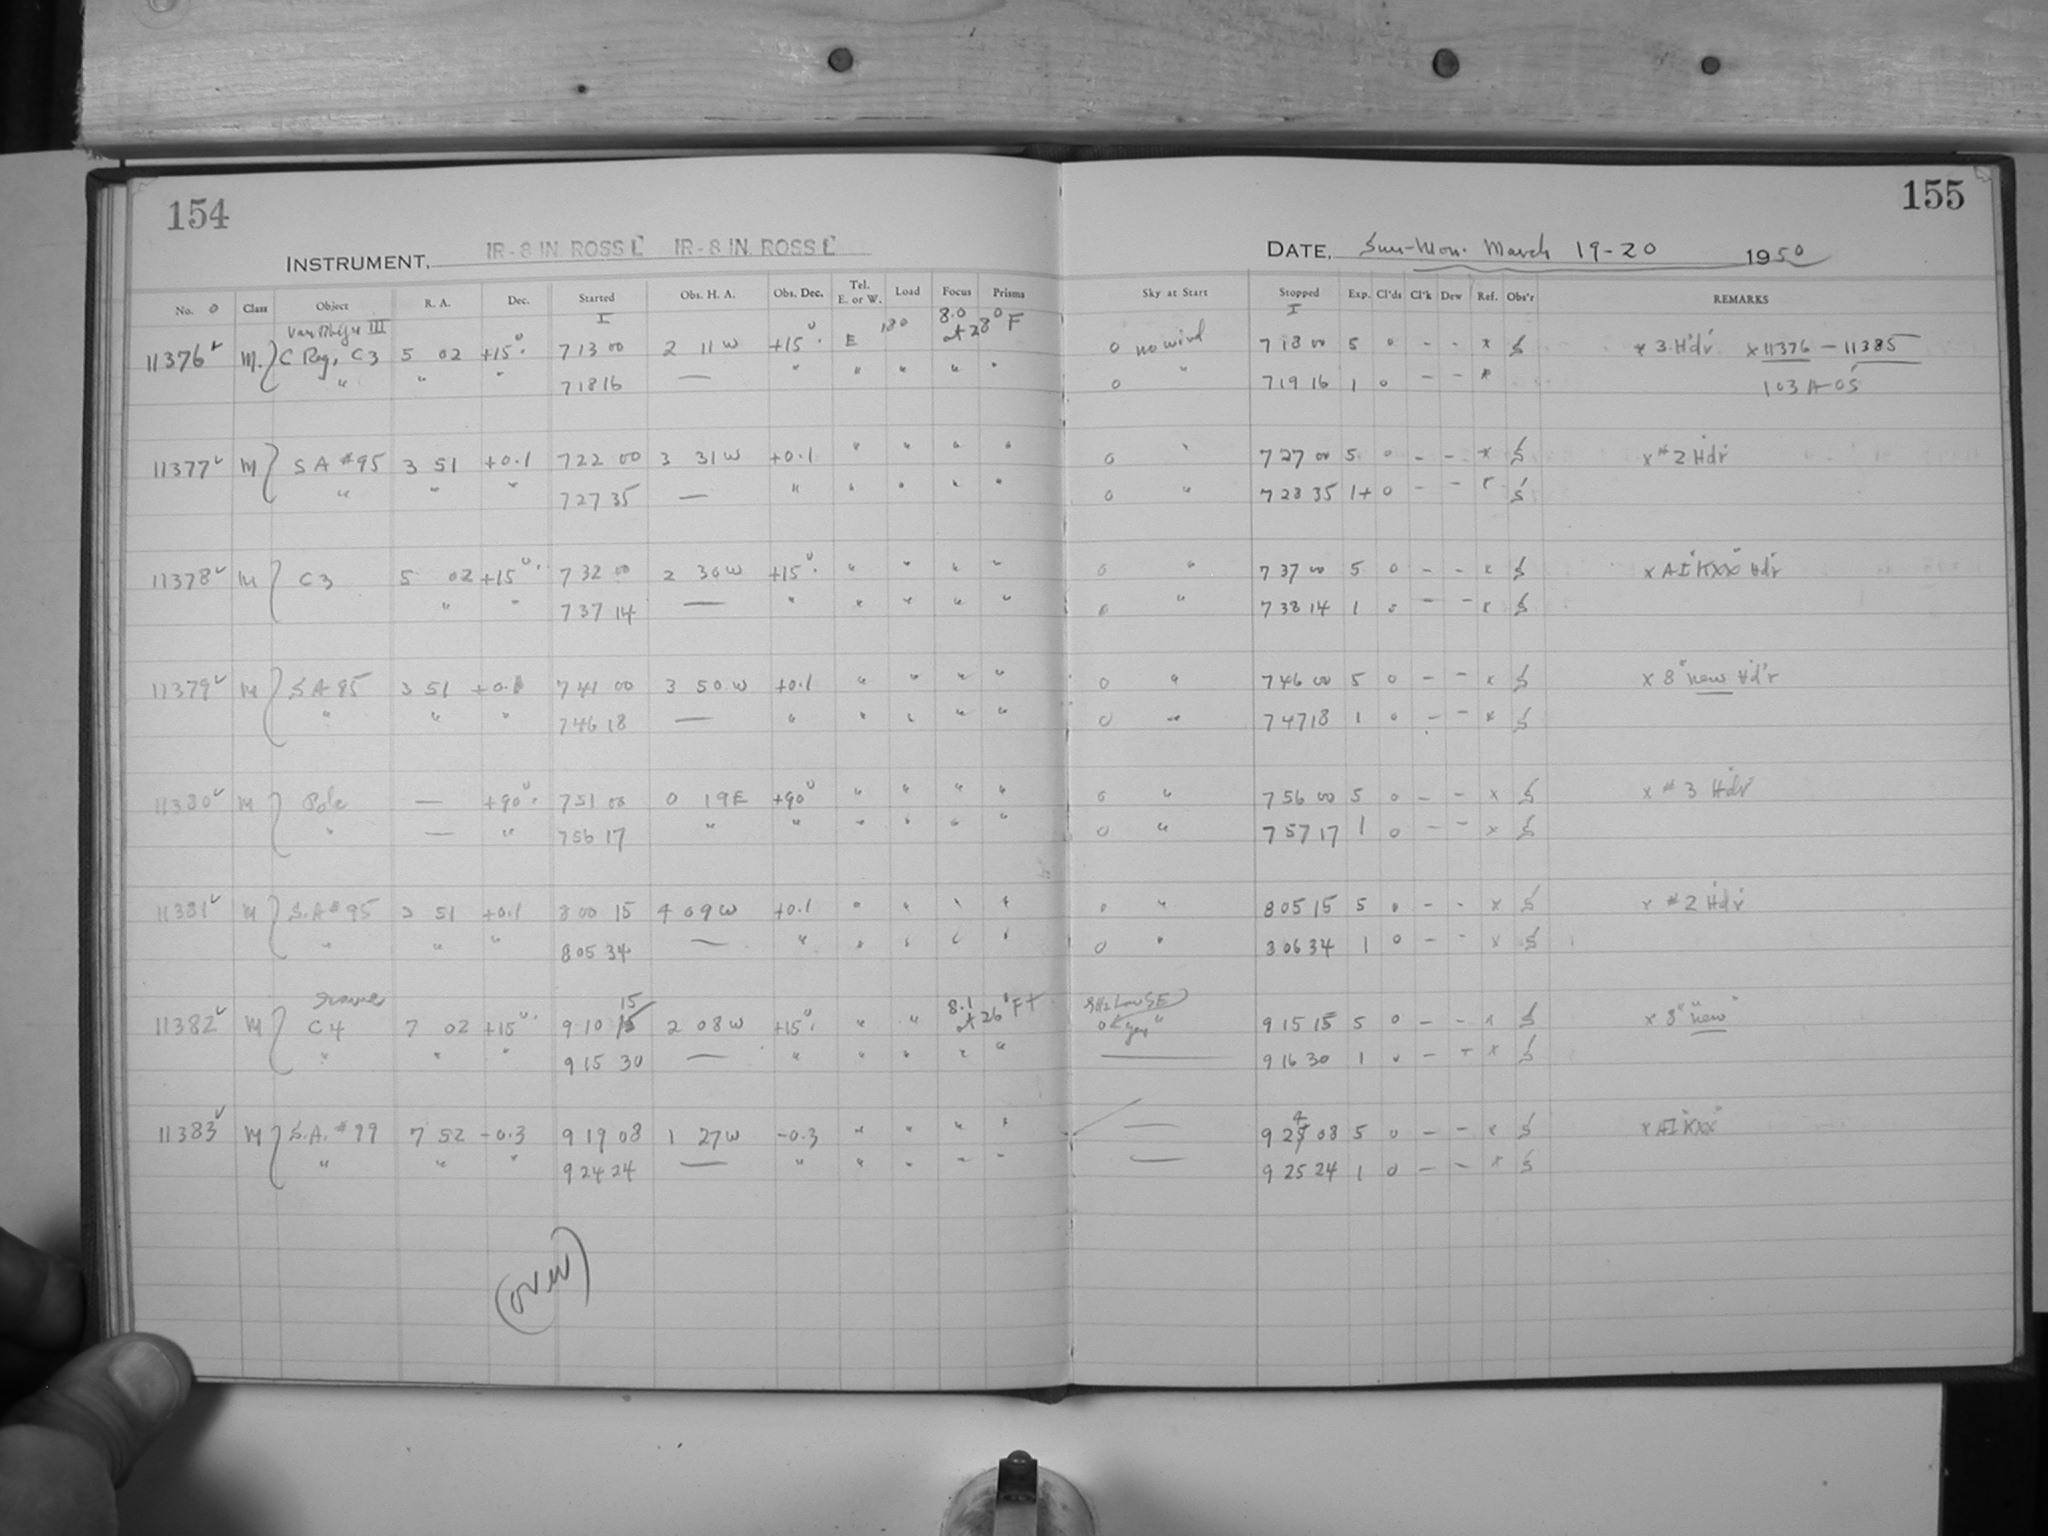 154
155
INSTRUMENT, IR-8 IN. ROSS IR-8 IN. ROSS
DATE, Sun-Mon. March 19-20 1950
No. Class Object R. A. Dec. Started Obs. H. A. Obs. Dec. Tel. E. or W. Load Focus Prisms Sky at Start Stopped Exp. Cl'ds Cl'k Dew Ref. Obs'r REMARKS
III 8.0
11376 M. C Reg, C3 5 02 +15° 7 13 00 2 11 W +15° E 180 at 28° F 0 no wind 7 18 00 5 0 - - x x 3 Hdr x 11376 - 11385
" " " 7 18 16 — " " " " " 0 " 7 19 16 1 0 - - x 103A-05
11377 M S A #95 3 51 +0.1 7 22 00 3 31 W +0.1 " " " " 0 " 7 27 00 5 0 - - x x #2 Hdr
" " " 7 27 35 — " " " " " 0 " 7 28 35 1+ 0 - - x
11378 M C3 5 02 +15° 7 32 00 2 30 W +15° " " " " 0 " 7 37 00 5 0 - - x x AIKXX Hdr
" " 7 37 14 — " " " " " 0 " 7 38 14 1 0 - - x
11379 M S A 95 3 51 +0.1 7 41 00 3 50 W +0.1 " " " " 0 " 7 46 00 5 0 - - x x 8" new Hd'r
" " " 7 46 18 — " " " " " 0 " 7 47 18 1 0 - - x
11380 M Pole — +90° 7 51 00 0 19 E +90° " " " " 0 " 7 56 00 5 0 - - x x #3 Hdr
" — " 7 56 17 " " " " " " 0 " 7 57 17 1 0 - - x
11381 M S.A #95 3 51 +0.1 8 00 15 4 09 W +0.1 " " " " 0 " 8 05 15 5 0 - - x x #2 Hdr
" " " 8 05 34 — " " " " " 0 " 8 06 34 1 0 - - x
15 8.1
11382 M C4 7 02 +15° 9 10 15 2 08 W +15° " " at 26° F+ 0 " 9 15 15 5 0 - - x x 8" "new"
" " " 9 15 30 — " " " " " — 9 16 30 1 0 - - x
11383 M S.A. #99 7 52 -0.3 9 19 08 1 27 W -0.3 " " " " — 9 24 08 5 0 - - x x AIKXX
" " " 9 24 24 — " " " " " — 9 25 24 1 0 - - x
(over)